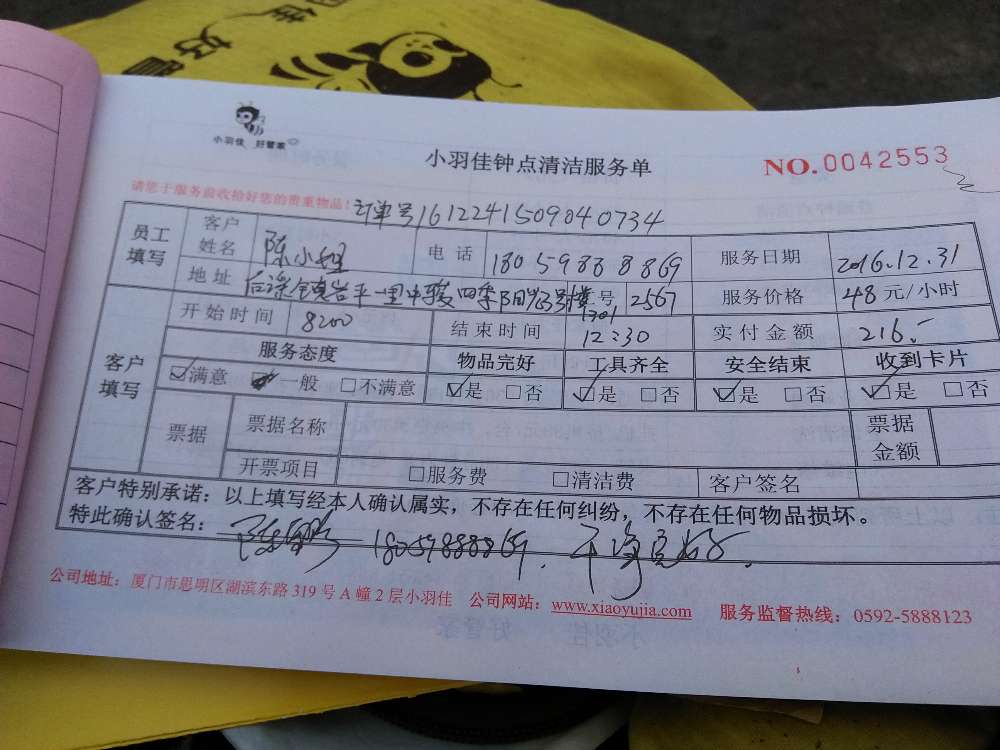 小羽佳 好管家
小羽佳钟点清洁服务单
NO.0042553
请您于服务前收拾好您的贵重物品! 订单号1612241509040734
员工填写 客户姓名 陈小姐 电话 18059888869 服务日期 2016.12.31
地址 号 2567 服务价格 48元/小时
1301
客户填写 开始时间 8:00 结束时间 12:30 实付金额 216.-
服务态度 物品完好 工具齐全 安全结束 收到卡片
☑满意 一般 □不满意 ☑是 □否 ☑是 □否 ☑是 □否 ☑是 □否
票据 票据名称 票据金额
开票项目 □服务费 □清洁费 客户签名
客户特别承诺：以上填写经本人确认属实，不存在任何纠纷，不存在任何物品损坏。
特此确认签名： 18059888869. 干净
公司地址：厦门市思明区湖滨东路319号A幢2层小羽佳 公司网站：www.xiaoyujia.com 服务监督热线：0592-5888123